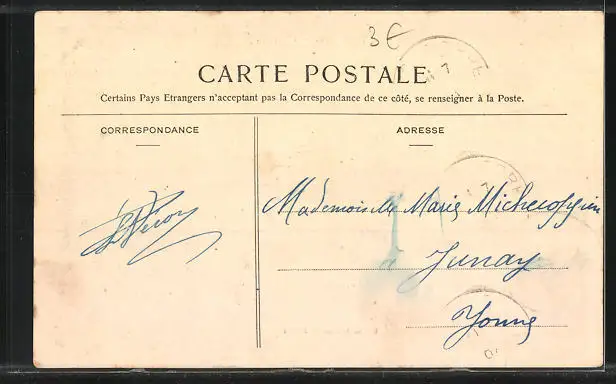 3€
CARTE POSTALE
Certains Pays Etrangers n'acceptent pas la Correspondance de ce côté, se renseigner à la Poste.
CORRESPONDANCE
ADRESSE
Mademoiselle Marie
à Junay
Yonne